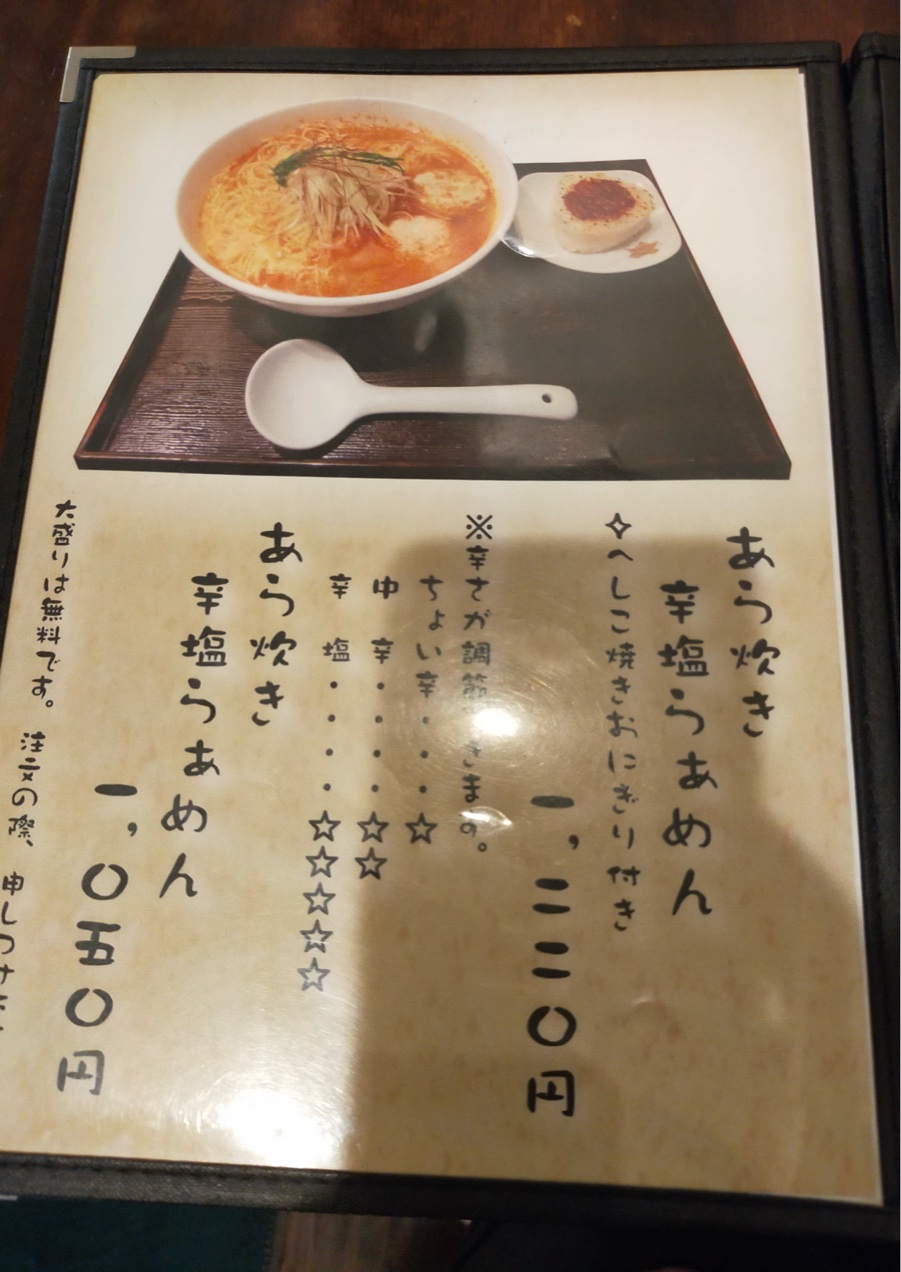 あら炊き
辛塩らぁめん
✧へしこ焼きおにぎり付き
一，二二〇円
※辛さが調節できます。
ちょい辛・・・☆
中辛・・・・☆☆
辛塩・・・・☆☆☆☆☆
あら炊き
辛塩らぁめん
一，〇五〇円
大盛りは無料です。注文の際、申しつけ